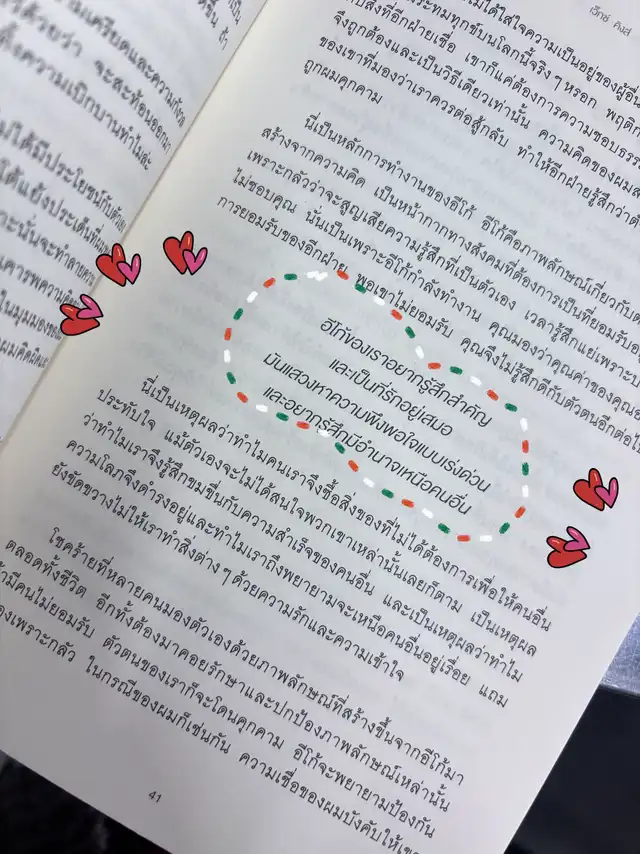 เว็กซ์ คิงส์
ได้ใส่ใจความเป็นอยู่ของผู้อื่น
ระทมทุกข์บนโลกนี้จริง ๆ หรอก พฤติ
กับสิ่งที่อีกฝ่ายเชื่อ เขาก็แค่ต้องการความชอบธรร
จึงถูกต้องและเป็นวิธีเดียวเท่านั้น ความคิดของผมส
ของเขาที่มองว่าเราควรต่อสู้กลับ ทำให้อีกฝ่ายรู้สึกว่าต
ถูกผมคุกคาม
นี่เป็นหลักการทำงานของอีโก้ อีโก้คือภาพลักษณ์เกี่ยวกับต
สร้างจากความคิด เป็นหน้ากากทางสังคมที่ต้องการเป็นที่ยอมรับอ
เพราะกลัวว่าจะสูญเสียความรู้สึกที่เป็นตัวเอง เวลารู้สึกแย่เพราะ
ไม่ชอบคุณ นั่นเป็นเพราะอีโก้กำลังทำงาน คุณมองว่าคุณค่าของคุณ
การยอมรับของอีกฝ่าย พอเขาไม่ยอมรับ คุณจึงไม่รู้สึกดีกับตัวตนอีกต่อไป
อีโก้ของเราอยากรู้สึกสำคัญ
และเป็นที่รักอยู่เสมอ
มันแสวงหาความพึงพอใจแบบเร่งด่วน
และอยากรู้สึกมีอำนาจเหนือคนอื่น
นี่เป็นเหตุผลว่าทำไมคนเราจึงซื้อสิ่งของที่ไม่ได้ต้องการเพื่อให้คนอื่น
ประทับใจ แม้ตัวเองจะไม่ได้สนใจพวกเขาเหล่านั้นเลยก็ตาม เป็นเหตุผล
ว่าทำไมเราจึงรู้สึกขมขื่นกับความสำเร็จของคนอื่น และเป็นเหตุผลว่าทำไม
ความโลภจึงดำรงอยู่และทำไมเราถึงพยายามจะเหนือคนอื่นอยู่เรื่อย แถม
ยังขัดขวางไม่ให้เราทำสิ่งต่าง ๆ ด้วยความรักและความเข้าใจ
โชคร้ายที่หลายคนมองตัวเองด้วยภาพลักษณ์ที่สร้างขึ้นจากอีโก้มา
ตลอดทั้งชีวิต อีกทั้งต้องมาคอยรักษาและปกป้องภาพลักษณ์เหล่านั้น
ามีคนไม่ยอมรับ ตัวตนของเราก็จะโดนคุกคาม อีโก้จะพยายามป้องกัน
องเพราะกลัว ในกรณีของผมก็เช่นกัน ความเชื่อของผมบังคับให้เขา
41